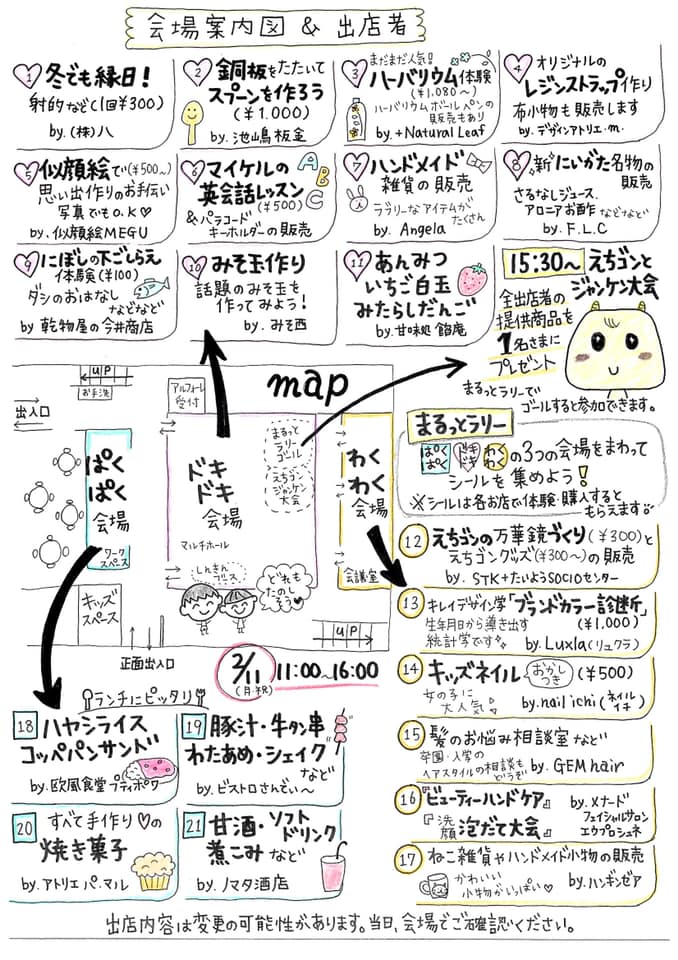 会場案内図 & 出店者
1 冬でも縁日!
射的など(1回¥300)
by.(株)ハ
2 銅板をたたいて
スプーンを作ろう
(¥1.000)
by. 池嶋板金
3 まだまだ人気!
ハーバリウム体験
(¥1.080~)
ハーバリウムボールペンの
販売もあり
by.+Natural Leaf
4 オリジナルの
レジンストラップ作り
布小物も販売します
by.デザインアトリエ・m.
5 似顔絵で(¥500~)
思い出作りのお手伝い
写真でもO.K♡
by.似顔絵MEGU
6 マイケルの
英会話レッスン
(¥500)
&パラコード
キーホルダーの販売
A B C
7 ハンドメイド
雑貨の販売
ラブリーなアイテムが
たくさん
by. Angela
8 新にいがた名物の
販売
さるなしジュース.
アロニアお酢などなど
by. F.L.C
9 にぼしの下ごしらえ
体験(¥100)
ダシのおはなし
などなど
by 乾物屋の今井商店
10 みそ玉作り
話題のみそ玉を
作ってみよう!
by.みそ西
11 あんみつ
いちご白玉
みたらしだんご
by.甘味処 餡庵
15:30~ えちゴンと
ジャンケン大会
全出店者の
提供商品を
1名さまに
プレゼント
まるっとラリーで
ゴールすると参加できます。
map
UP
お手洗
出入口
アルフォーレ
受付
ぱく
ぱく
会場
ワーク
スペース
ドキ
ドキ
会場
マルチホール
まるっと
ラリー
ゴール
えちゴン
ジャンケン
大会
わく
わく
会場
会議室
しんきん
ブース
どれも
たのし
そう♥
キッズ
スペース
正面出入口
UP
2/11
(月・祝)
11:00~16:00
まるっとラリー
ぱくぱく ドキドキ わくわく の3つの会場をまわって
シールを集めよう!
※シールは各お店で体験・購入すると
もらえます
12 えちゴンの万華鏡づくり(¥300)と
えちゴングッズ(¥300~)の販売
by. STK+たいようSOCIOセンター
13 キレイデザイン学「ブランドカラー診断」
生年月日から導き出す
統計学です
(¥1,000)
by.Luxla(リュクラ)
14 キッズネイル おかしつき (¥500)
女の子に
大人気♪
by.nail ichi(ネイルイチ)
15 髪のお悩み相談室など
卒園・入学の
ヘアスタイルの相談も
どうぞ
by. GEM hair
16 『ビューティーハンドケア』
『洗顔泡だて大会』
by.メナード
フェイシャルサロン
エウプロシュネ
17 ねこ雑貨やハンドメイド小物の販売
かわいい
小物がいっぱい♡
by.ハンギンゼア
ランチにピッタリ
18 ハヤシライス
コッペパンサンド
by.欧風食堂プティポワ
19 豚汁・牛タン串
わたあめ・シェイク
など
by.ビストロさんでぃ~
20 すべて手作り♡の
焼き菓子
by.アトリエ パ・マル
21 甘酒・ソフト
ドリンク
煮こみなど
by.ノマタ酒店
出店内容は変更の可能性があります。当日、会場でご確認ください。